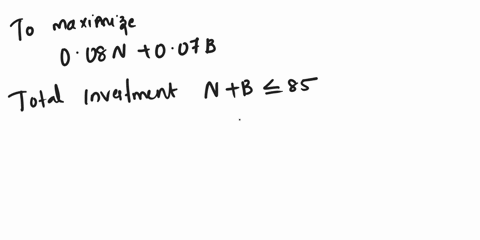 To maximize
0.08N + 0.07B
Total Investment N + B ≤ 85